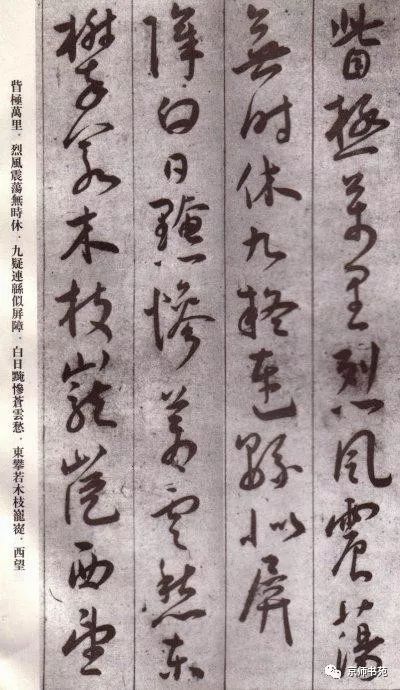 眥極萬里烈風震蕩
無時休九疑連緜似屏
障白日黤慘蒼雲愁東
攀若木枝巃嵸西望
眥極萬里．烈風震蕩無時休．九疑連緜似屏障．白日黤慘蒼雲愁．東攀若木枝巃嵸．西望
京师书苑